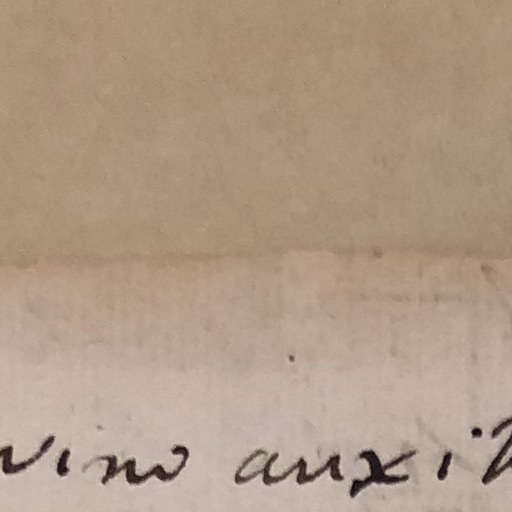 vino auxi